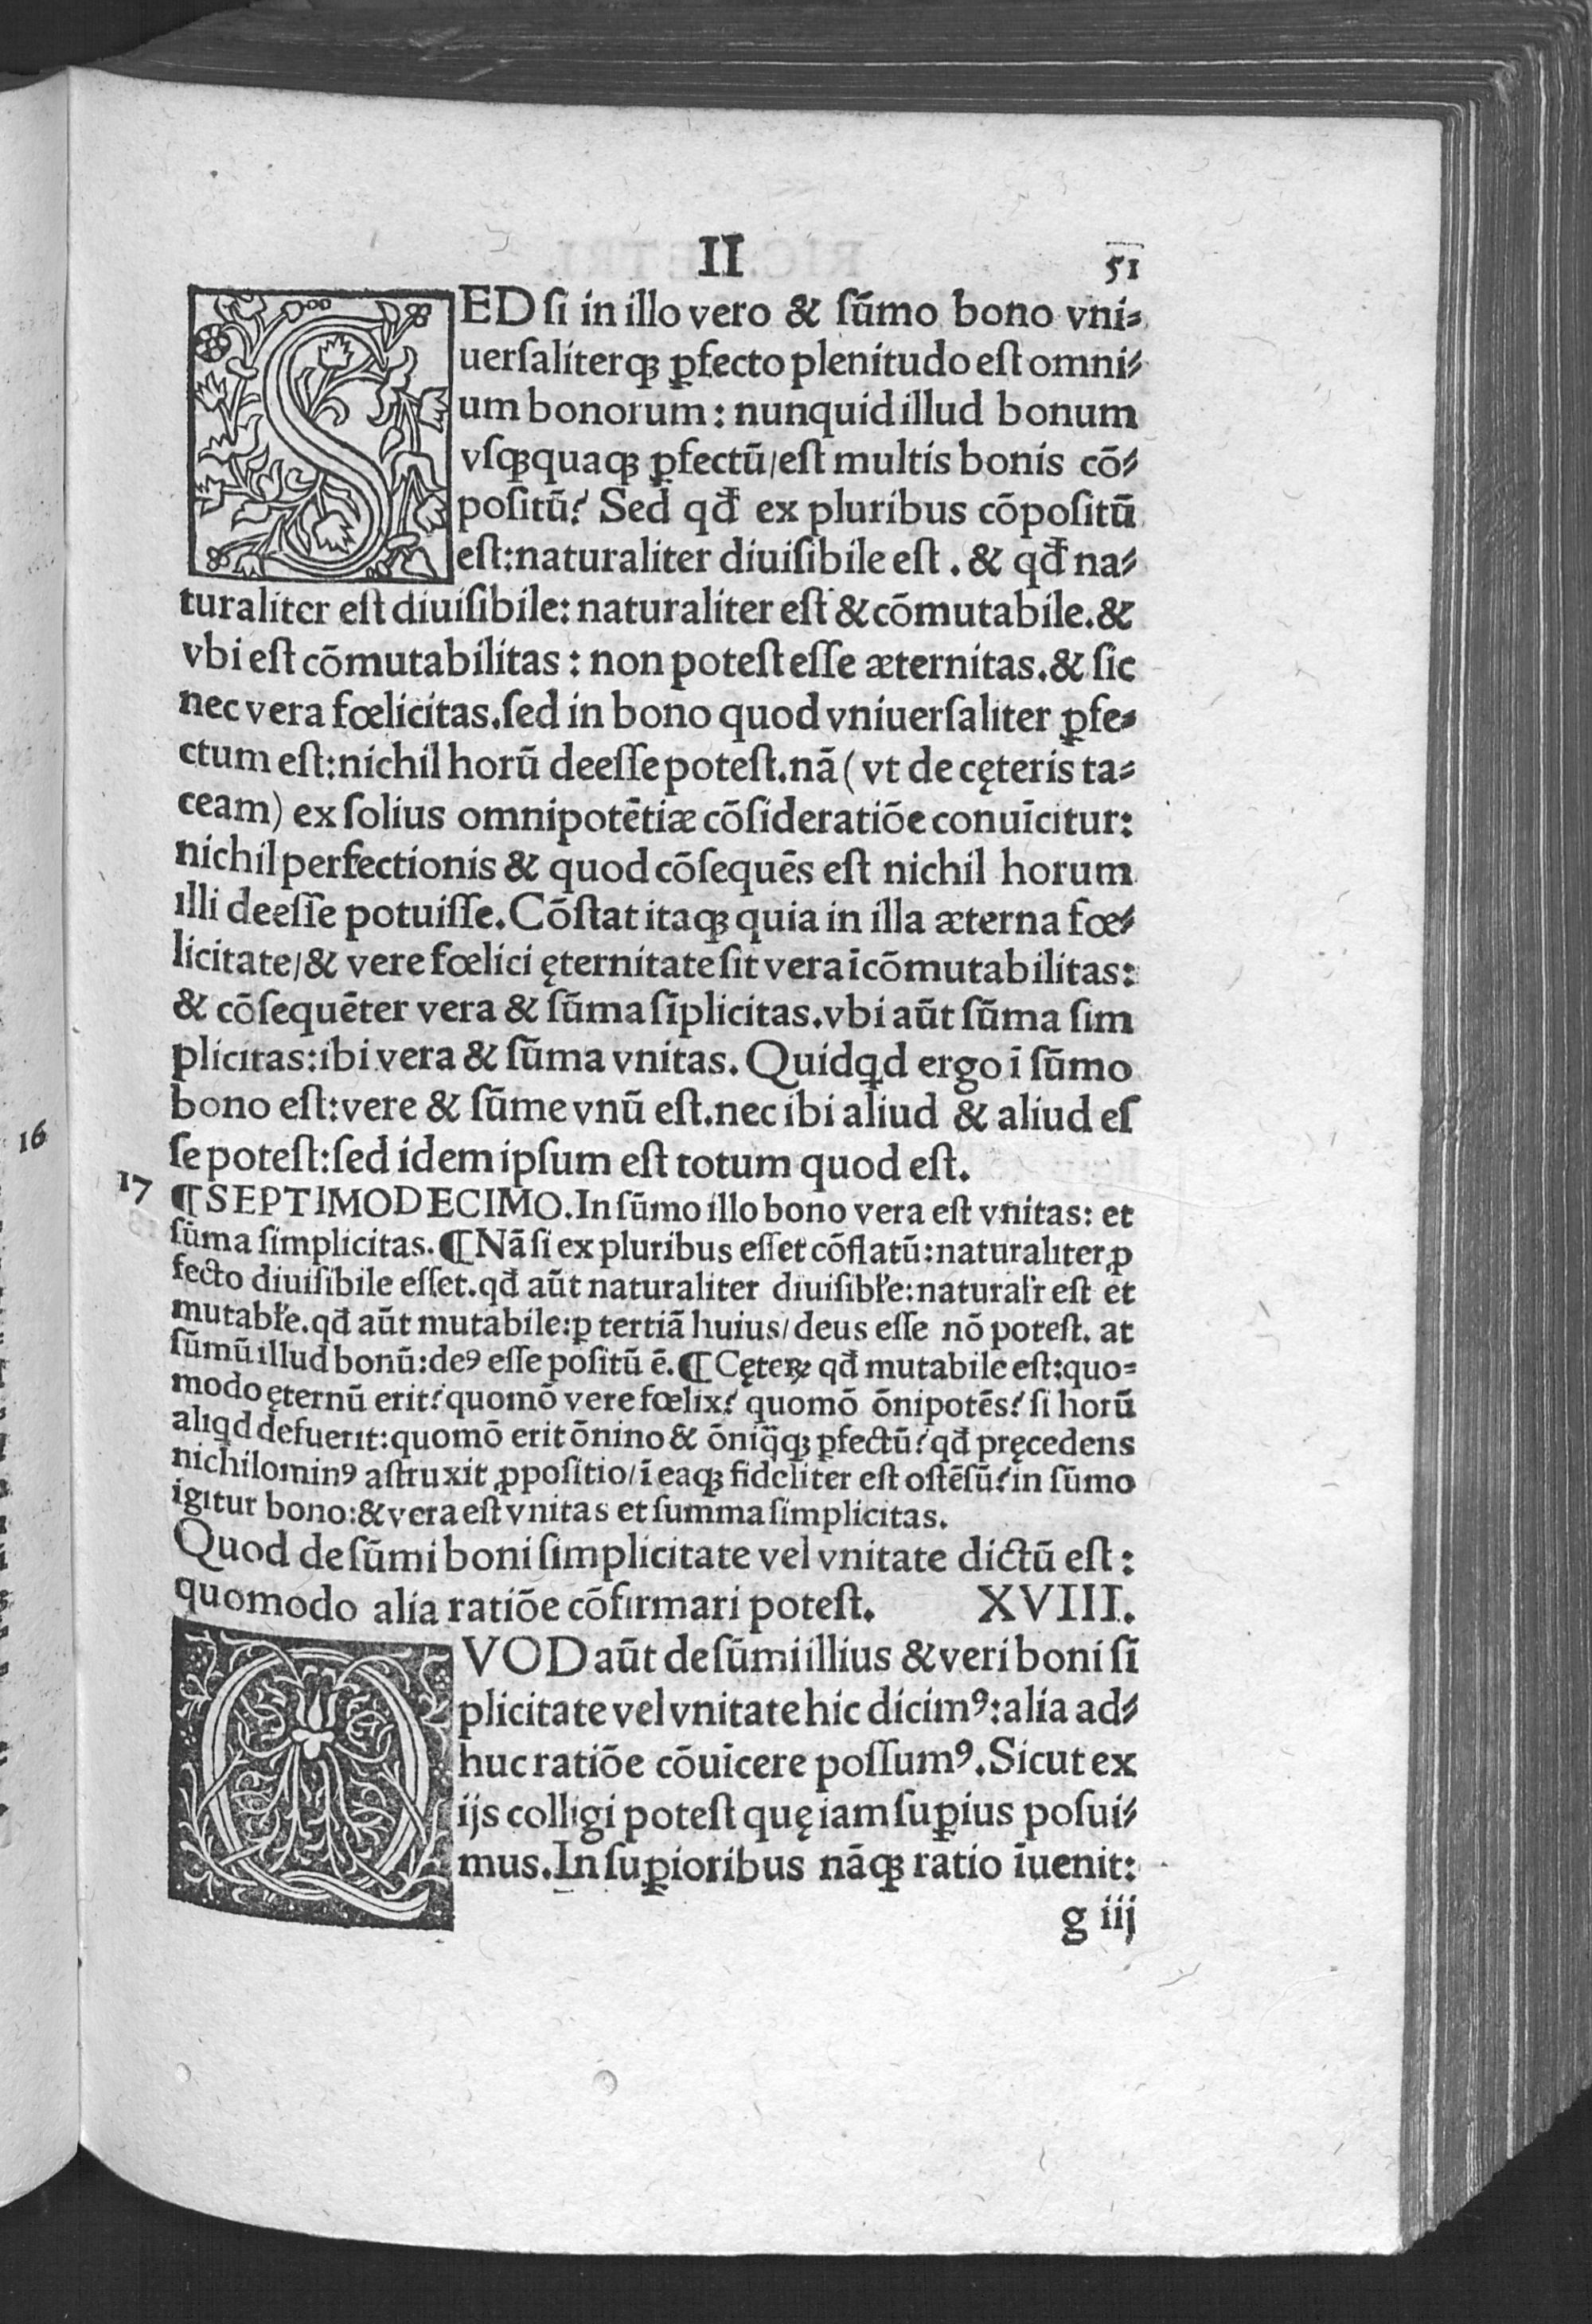 II
51
SED ſi in illo vero & ſūmo bono vni⸗
uerſaliterqꝫ ꝑfecto plenitudo eſt omni⸗
um bonorum: nunquid illud bonum
vſqꝫquaqꝫ ꝑfectū/eſt multis bonis cō⸗
poſitū? Sed qđ ex pluribus cōpoſitū
eſt:naturaliter diuiſibile eſt. & qđ na⸗
turaliter eſt diuiſibile: naturaliter eſt & cōmutabile. &
vbi eſt cōmutabilitas: non poteſt eſſe æternitas. & ſic
nec vera fœlicitas. ſed in bono quod vniuerſaliter ꝑfe⸗
ctum eſt:nichil horū deeſſe poteſt. nā (vt de cęteris ta⸗
ceam) ex ſolius omnipotētiæ cōſideratiōe conuīcitur:
nichil perfectionis & quod cōſequēs eſt nichil horum
illi deeſſe potuiſſe. Cōſtat itaqꝫ quia in illa æterna fœ⸗
licitate/& vere fœlici ęternitate ſit vera īcōmutabilitas:
& cōſequēter vera & ſūma ſīplicitas. vbi aūt ſūma ſim
plicitas:ibi vera & ſūma vnitas. Quidꝗd ergo ī ſūmo
bono eſt:vere & ſūme vnū eſt. nec ibi aliud & aliud eſ
ſe poteſt:ſed idem ipſum eſt totum quod eſt.
16
17
¶ SEPTIMODECIMO. In ſūmo illo bono vera eſt vnitas: et
ſūma ſimplicitas. ¶ Nā ſi ex pluribus eſſet cōflatū:naturaliter ꝓ
fecto diuiſibile eſſet. qđ aūt naturaliter diuiſibłe: naturałr eſt et
mutabłe. qđ aūt mutabile: ꝑ tertiā huius/deus eſſe nō poteſt. at
ſūmū illud bonū:deꝰ eſſe poſitū ē. ¶ Cęteꝝ qđ mutabile eſt:quo⸗
modo ęternū erit? quomō vere fœlix? quomō ōnipotēs? ſi horū
aliꝗd defuerit:quomō erit ōnino & ōniq̄qꝫ ꝑfectū? qđ pręcedens
nichilominꝰ aſtruxit ꝓpoſitio/ī eaqꝫ fideliter eſt oſtēſū? in ſūmo
igitur bono:& vera eſt vnitas et ſumma ſimplicitas.
Quod de ſūmi boni ſimplicitate vel vnitate dictū eſt:
quomodo alia ratiōe cōfirmari poteſt. XVIII.
QVOD aūt de ſūmi illius & veri boni ſī
plicitate vel vnitate hic dicimꝰ: alia ad⸗
huc ratiōe cōuīcere poſſumꝰ. Sicut ex
ijs colligi poteſt quę iam ſuꝑius poſui⸗
mus. In ſuꝑioribus nāqꝫ ratio īuenit:
g iij